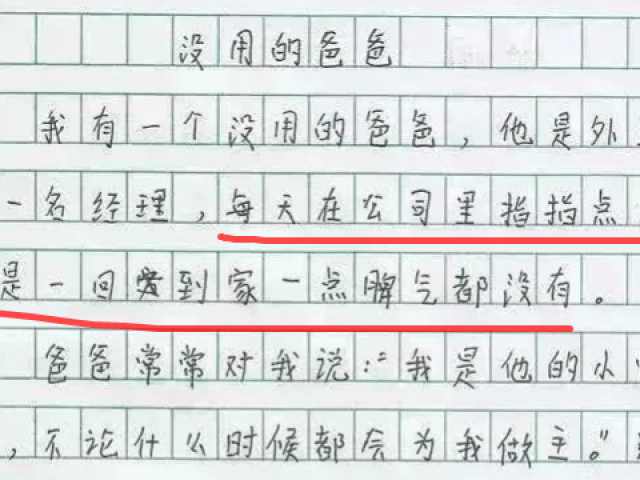 没用的爸爸
我有一个没用的爸爸，他是外
一名经理，每天在公司里指指点
是一回到家一点脾气都没有。
爸爸常常对我说：“我是他的小
，不论什么时候都会为我做主。”